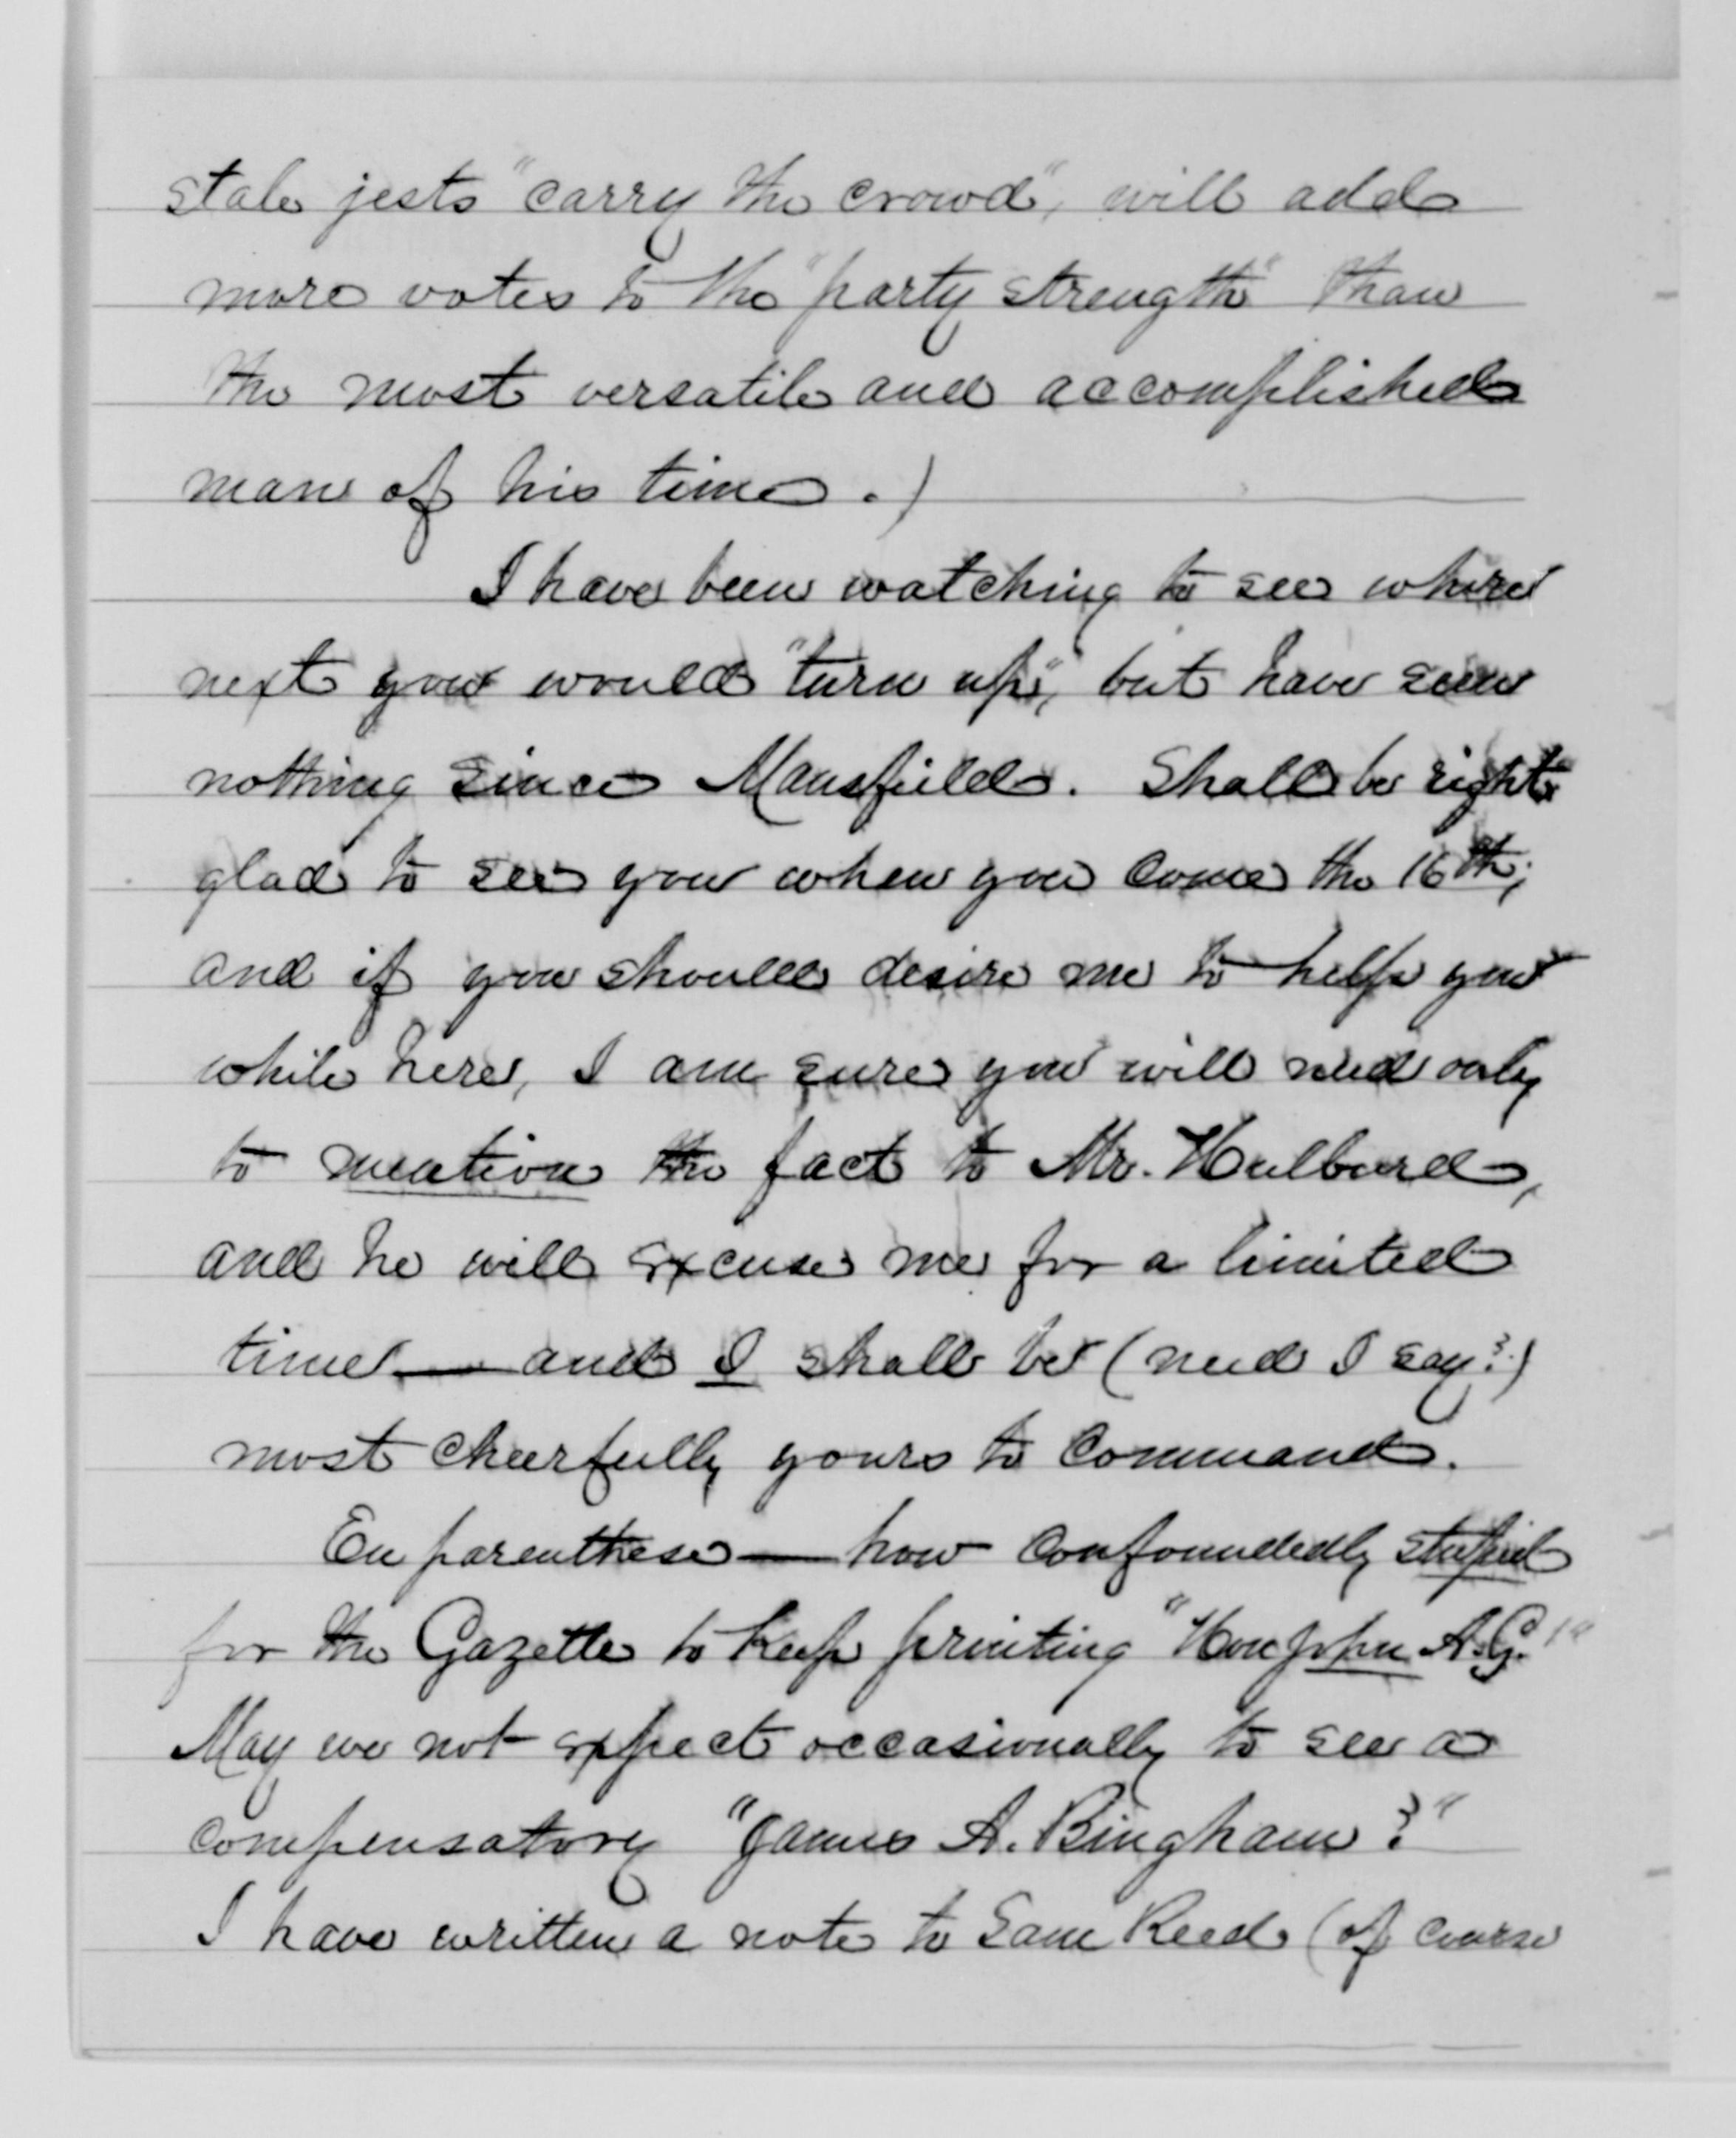 stale jests "carry the crowd", will add
more votes to the "party strength" than
the most versatile and accomplished
man of his time.)
I have been watching to see where
next you would "turn up", but have seen
nothing since Mansfield. Shall be right
glad to see you when you come the 16th;
and if you should desire me to help you
while here, I am sure you will need only
to mention the fact to Mr. Hulburd,
and he will excuse me for a limited
time — and I shall be (need I say?)
most cheerfully yours to command.
En parenthese — how confoundedly stupid
for the Gazette to keep printing "Hon John A. G."
May we not expect occasionally to see a
compensatory "James A. Bingham?"
I have written a note to Sam Reed (of course